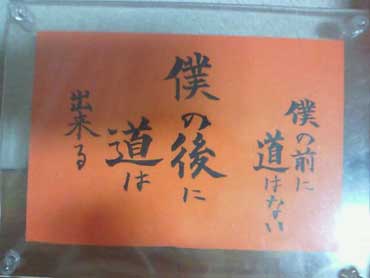 僕の前に
道はない
僕の後に
道は
出来る